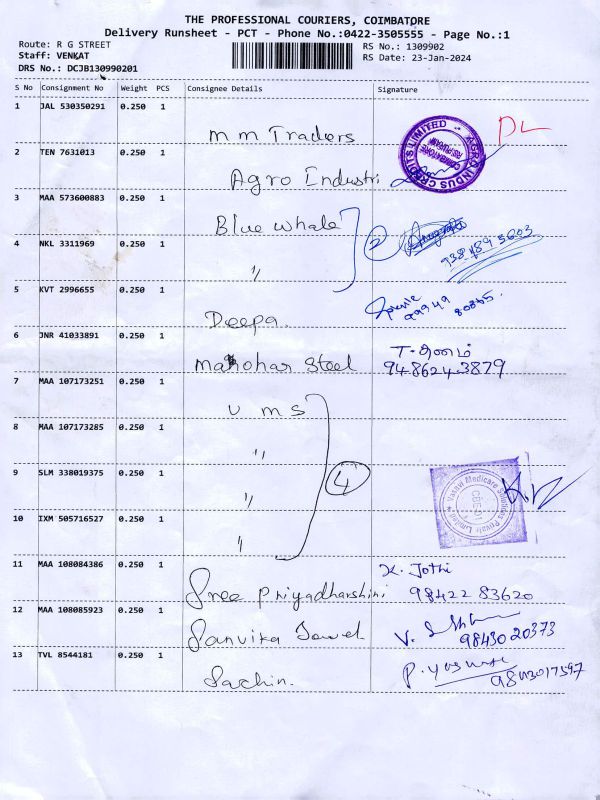 THE PROFESSIONAL COURIERS, COIMBATORE
Delivery Runsheet - PCT - Phone No.:0422-3505555 - Page No.:1
Route: R G STREET
RS No.: 1309902
Staff: VENKAT
RS Date: 23-Jan-2024
DRS No.: DCJB130990201
S No Consignment No Weight PCS Consignee Details Signature
1 JAL 530350291 0.250 1 M M Traders DL
2 TEN 7631013 0.250 1 Agro Industri
AGRO INDUS CREDITS LIMITED
COIMBATORE
3 MAA 573600883 0.250 1 Blue whale
2
4 NKL 3311969 0.250 1 "
5 KVT 2996655 0.250 1 Deepa.
99949 80865.
6 JNR 41033891 0.250 1 Manohar Steel
9486243879
7 MAA 107173251 0.250 1 U M S
8 MAA 107173285 0.250 1 "
4
9 SLM 338019375 0.250 1 "
Vasavi Medicare Solutions Private Limited
10 IXM 505716527 0.250 1 "
11 MAA 108084386 0.250 1 Sree Priyadharshini K. Jothi
98422 83620
12 MAA 108085923 0.250 1 Sanvika Jewel V.
9843020373
13 TVL 8544181 0.250 1 Sachin. P.
9843017597